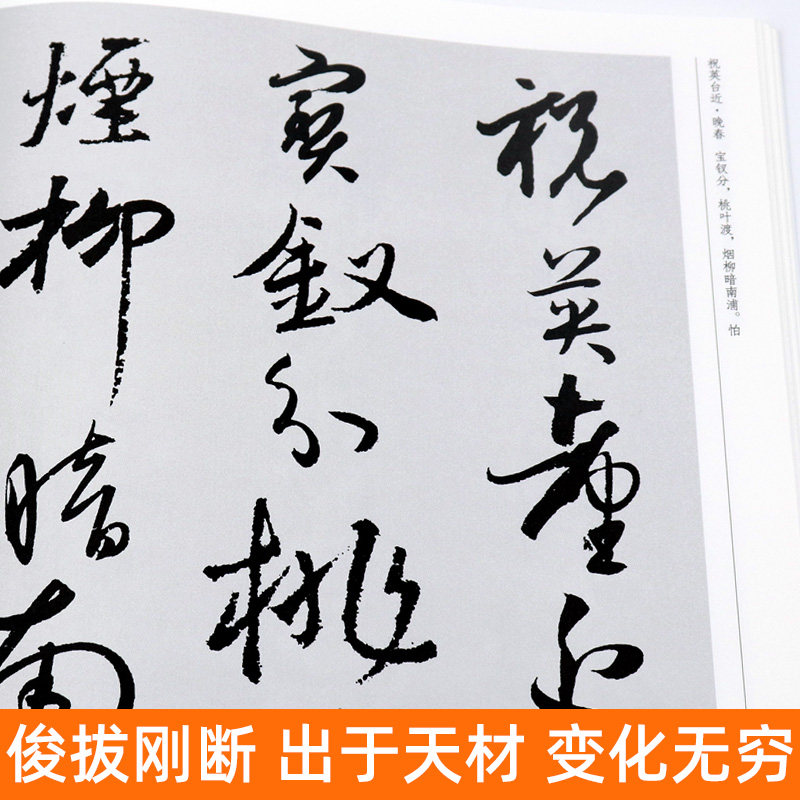 祝英台近·晚春　宝钗分，桃叶渡，烟柳暗南浦。怕
祝英臺近
寶釵分桃
煙柳暗南
俊拔刚断 出于天材 变化无穷